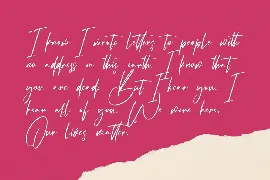 I know I wrote letters to people with
no address on this earth. I know that
you are dead. But I hear you. I
hear all of you. We were here.
Our lives matter.